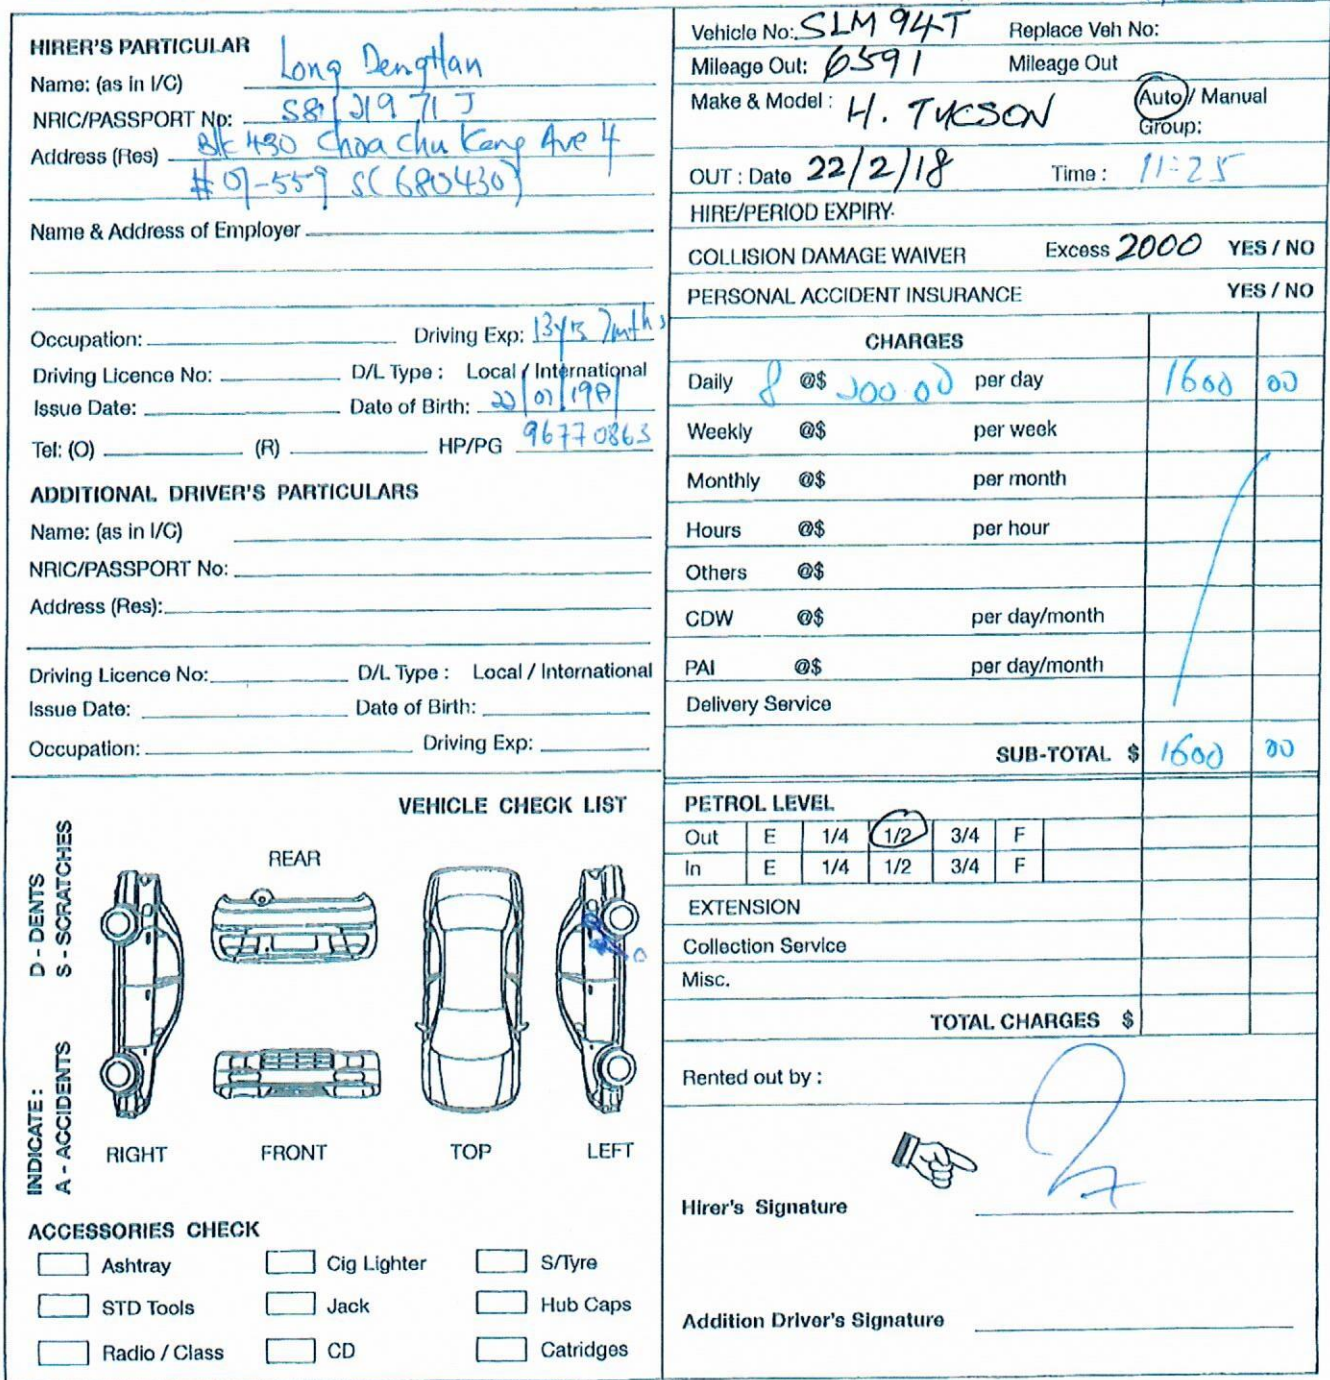 HIRER'S PARTICULAR
Name: (as in I/C) Long DengHan
NRIC/PASSPORT No: S8121971J
Address (Res) Blk 430 Choa Chu Kang Ave 4
#07-559 S(680430)
Name & Address of Employer
Occupation: Driving Exp: 13yrs 7mths
Driving Licence No: D/L Type : Local / International
Issue Date: Date of Birth: 22/07/1981
Tel: (O) (R) HP/PG 96770863
ADDITIONAL DRIVER'S PARTICULARS
Name: (as in I/C)
NRIC/PASSPORT No:
Address (Res):
Driving Licence No: D/L Type : Local / International
Issue Date: Date of Birth:
Occupation: Driving Exp:
VEHICLE CHECK LIST
INDICATE :
D - DENTS
S - SCRATCHES
A - ACCIDENTS
REAR
RIGHT FRONT TOP LEFT
ACCESSORIES CHECK
Ashtray Cig Lighter S/Tyre
STD Tools Jack Hub Caps
Radio / Class CD Catridges
Vehicle No: SLM 94T Replace Veh No:
Mileage Out: 6591 Mileage Out
Make & Model : H. TUCSON Auto / Manual
Group:
OUT : Date 22/2/18 Time : 11:25
HIRE/PERIOD EXPIRY
COLLISION DAMAGE WAIVER Excess 2000 YES / NO
PERSONAL ACCIDENT INSURANCE YES / NO
CHARGES
Daily 8 @$ 200.00 per day 1600 00
Weekly @$ per week
Monthly @$ per month
Hours @$ per hour
Others @$
CDW @$ per day/month
PAI @$ per day/month
Delivery Service
SUB-TOTAL $ 1600 00
PETROL LEVEL
Out E 1/4 1/2 3/4 F
In E 1/4 1/2 3/4 F
EXTENSION
Collection Service
Misc.
TOTAL CHARGES $
Rented out by :
Hirer's Signature
Addition Driver's Signature